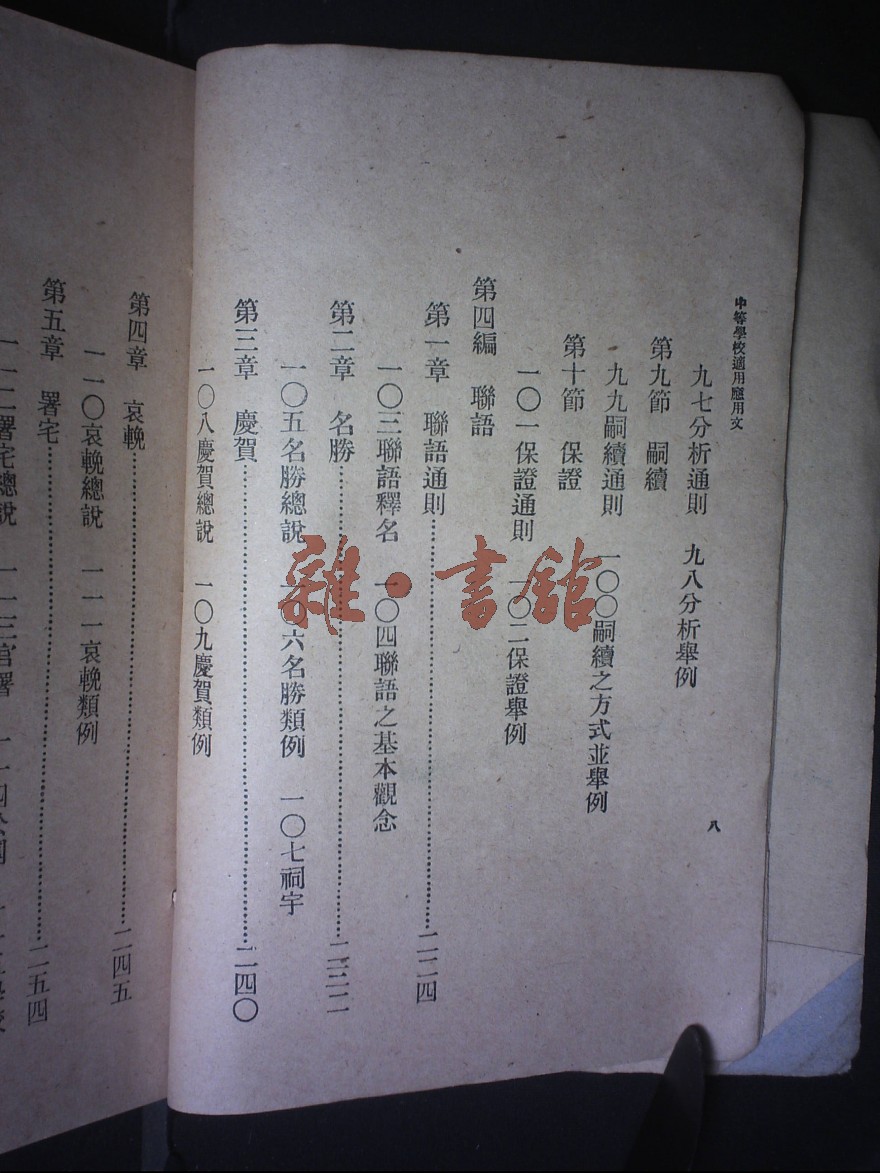 中等學校適用應用文
八
九七分析通則　九八分析舉例
第九節　嗣續
九九嗣續通則　一〇〇嗣續之方式並舉例
第十節　保證
一〇一保證通則　一〇二保證舉例
第四編　聯語
第一章　聯語通則……二二四
一〇三聯語釋名　一〇四聯語之基本觀念
第二章　名勝……二三二
一〇五名勝總說　一〇六名勝類例　一〇七祠宇
第三章　慶賀……二四〇
一〇八慶賀總說　一〇九慶賀類例
第四章　哀輓……二四五
一一〇哀輓總說　一一一哀輓類例
第五章　署宅……二五四
一一二署宅總說　一一三官署
雜·書館